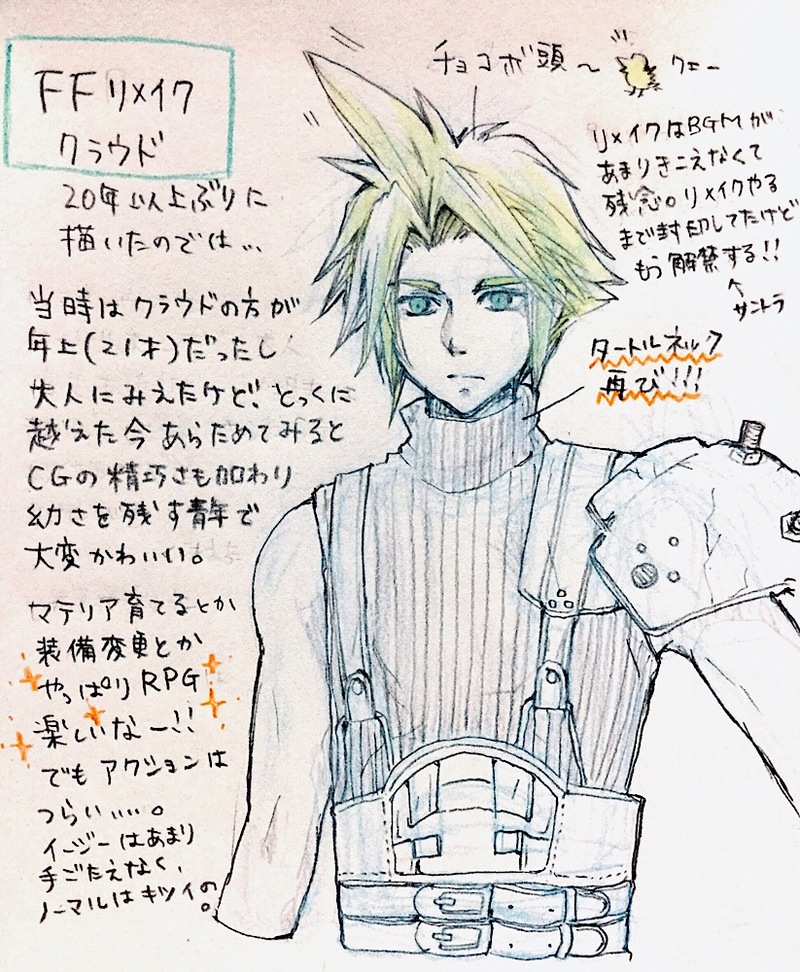 FFリメイク
クラウド
20年以上ぶりに
描いたのでは…
当時はクラウドの方が
年上(21才)だったし
大人にみえたけど、とっくに
越えた今あらためてみると
CGの精巧さも加わり
幼さを残す青年で
大変かわいい。
マテリア育てるとか
装備変更とか
やっぱりRPG
楽しいなー!!
でもアクションは
つらい……。
イージーはあまり
手ごたえなく、
ノーマルはキツイの。
チョコボ頭〜
クエー
リメイクはBGMが
あまりきこえなくて
残念。リメイクやる
まで封印してたけど
もう解禁する!!
↑
サントラ
タートルネック
再び!!!